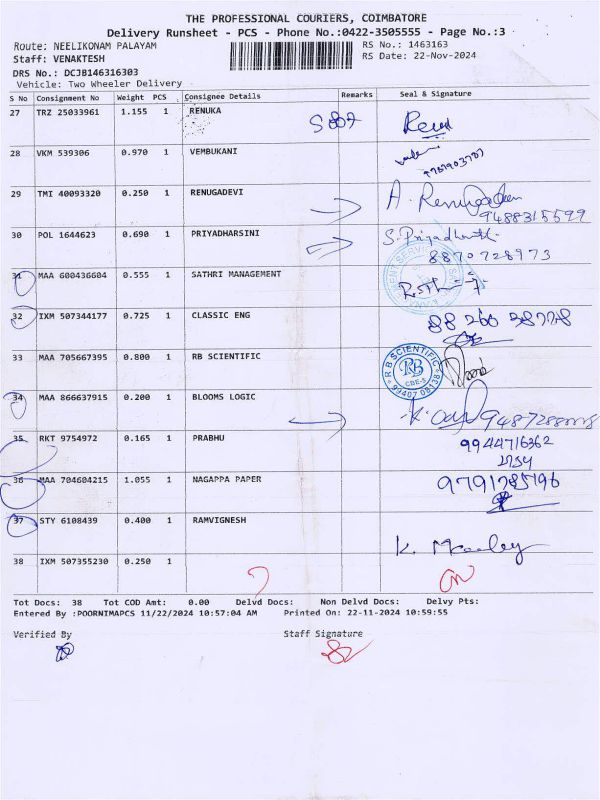 THE PROFESSIONAL COURIERS, COIMBATORE
Delivery Runsheet - PCS - Phone No.:0422-3505555 - Page No.:3
Route: NEELIKONAM PALAYAM RS No.: 1463163
Staff: VENAKTESH RS Date: 22-Nov-2024
DRS No.: DCJB146316303
Vehicle: Two Wheeler Delivery
S No Consignment No Weight PCS Consignee Details Remarks Seal & Signature
27 TRZ 25033961 1.155 1 RENUKA
28 VKM 539306 0.970 1 VEMBUKANI
29 TMI 40093320 0.250 1 RENUGADEVI A. Renugadevi
9488315599
30 POL 1644623 0.690 1 PRIYADHARSINI S. Priyadharshi
8870728973
31 MAA 600436604 0.555 1 SATHRI MANAGEMENT
32 IXM 507344177 0.725 1 CLASSIC ENG
33 MAA 705667395 0.800 1 RB SCIENTIFIC RB SCIENTIFIC RB CBE-5
34 MAA 866637915 0.200 1 BLOOMS LOGIC
35 RKT 9754972 0.165 1 PRABHU 9944716362
36 MAA 704604215 1.055 1 NAGAPPA PAPER 9791785196
37 STY 6108439 0.400 1 RAMVIGNESH
38 IXM 507355230 0.250 1
Tot Docs: 38 Tot COD Amt: 0.00 Delvd Docs: Non Delvd Docs: Delvy Pts:
Entered By :POORNIMAPCS 11/22/2024 10:57:04 AM Printed On: 22-11-2024 10:59:55
Verified By Staff Signature